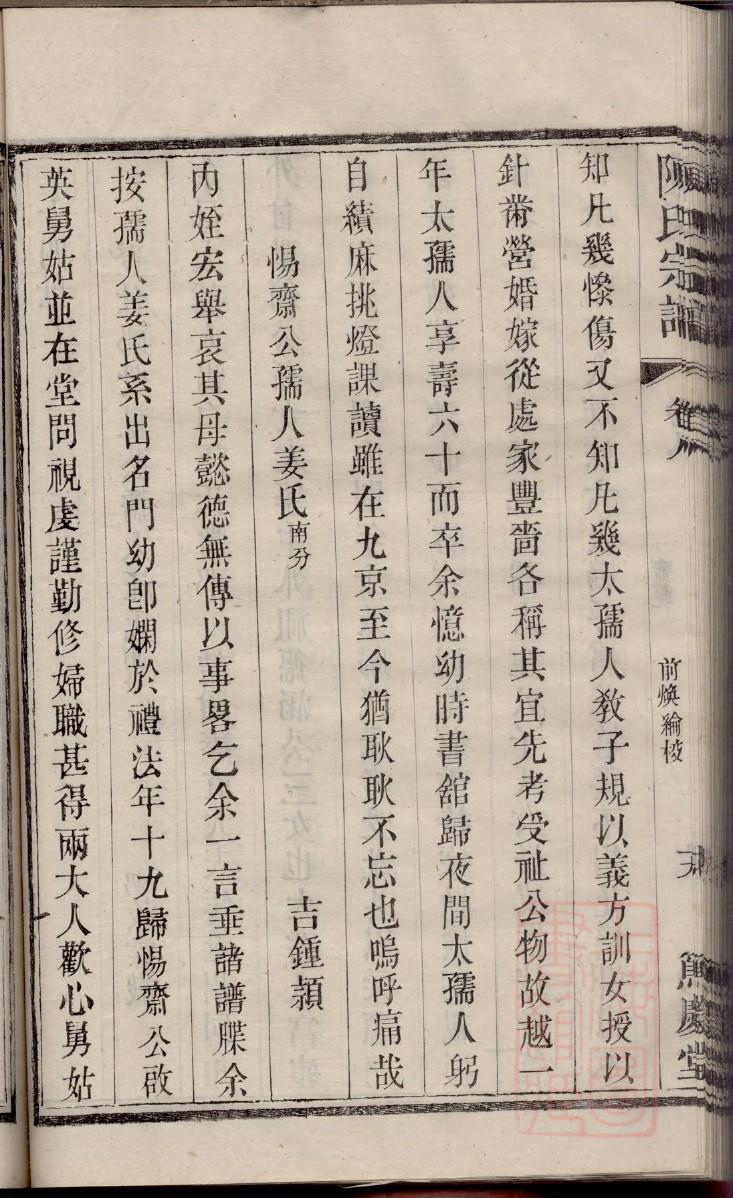 陳氏宗譜
卷八
前煥綸校
篤慶堂
知凡幾慘傷又不知凡幾太孺人教子規以義方訓女授以
針黹營婚嫁從處家豐嗇各稱其宜先考受祉公物故越一
年太孺人享壽六十而卒余憶幼時書舘歸夜間太孺人躬
自績麻挑燈課讀雖在九京至今猶耿耿不忘也嗚呼痛哉
惕齋公孺人姜氏南分
吉鍾潁
內姪宏舉哀其母懿德無傳以事畧乞余一言垂諸譜牒余
按孺人姜氏系出名門幼卽嫻於禮法年十九歸惕齋公啟
英舅姑並在堂問視虔謹勤修婦職甚得兩大人歡心舅姑